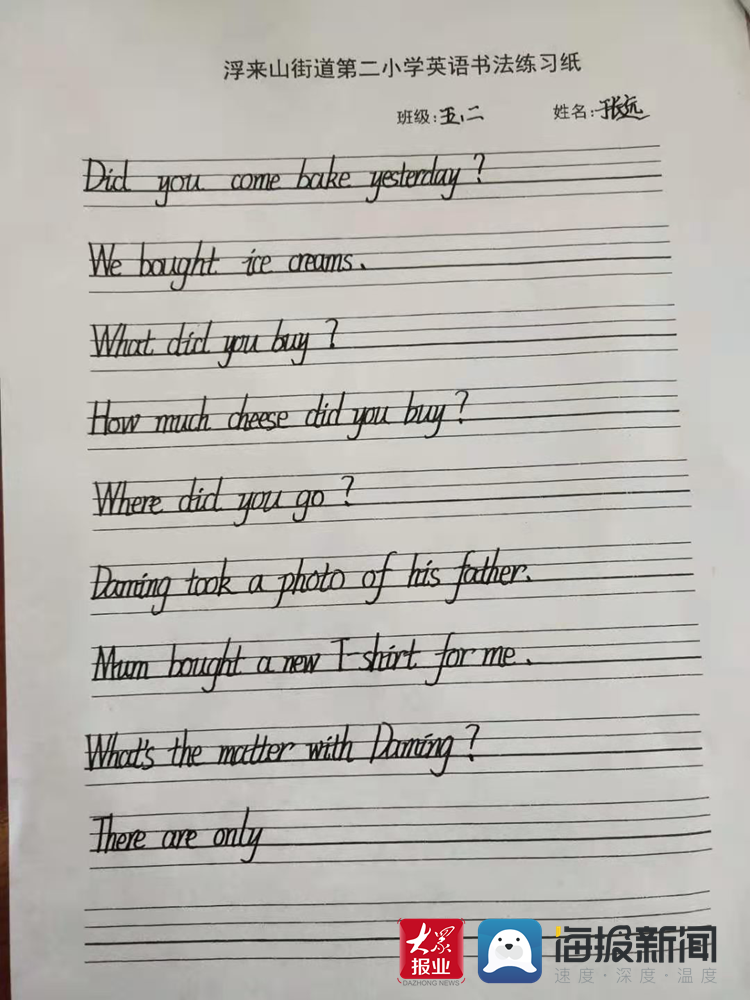 浮来山街道第二小学英语书法练习纸
班级:五.二 姓名:于长远
Did you come bake yesterday?
We bought ice creams.
What did you buy?
How much cheese did you buy?
Where did you go?
Daming took a photo of his father.
Mum bought a new T-shirt for me.
What's the matter with Daming?
There are only
大众报业
DAZHONG NEWS
海报新闻
速度·深度·温度